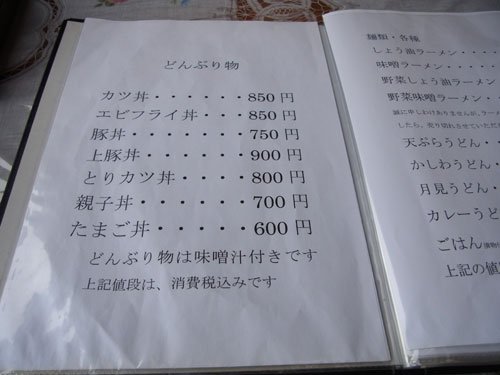 どんぶり物
カツ丼・・・・・・850円
エビフライ丼・・・850円
豚丼・・・・・・・750円
上豚丼・・・・・・900円
とりカツ丼・・・・800円
親子丼・・・・・・700円
たまご丼・・・・・600円
どんぶり物は味噌汁付きです
上記値段は、消費税込みです
麺類・各種
しょう油ラーメン・・・・・
味噌ラーメン・・・・
野菜しょう油ラーメン
野菜味噌ラーメン・・
誠に申しわけありませんが、ラー
したら、売り切れさせていただ
天ぷらうどん・・
かしわうどん・
月見うどん・・
カレーうど
ごはん
上記の値